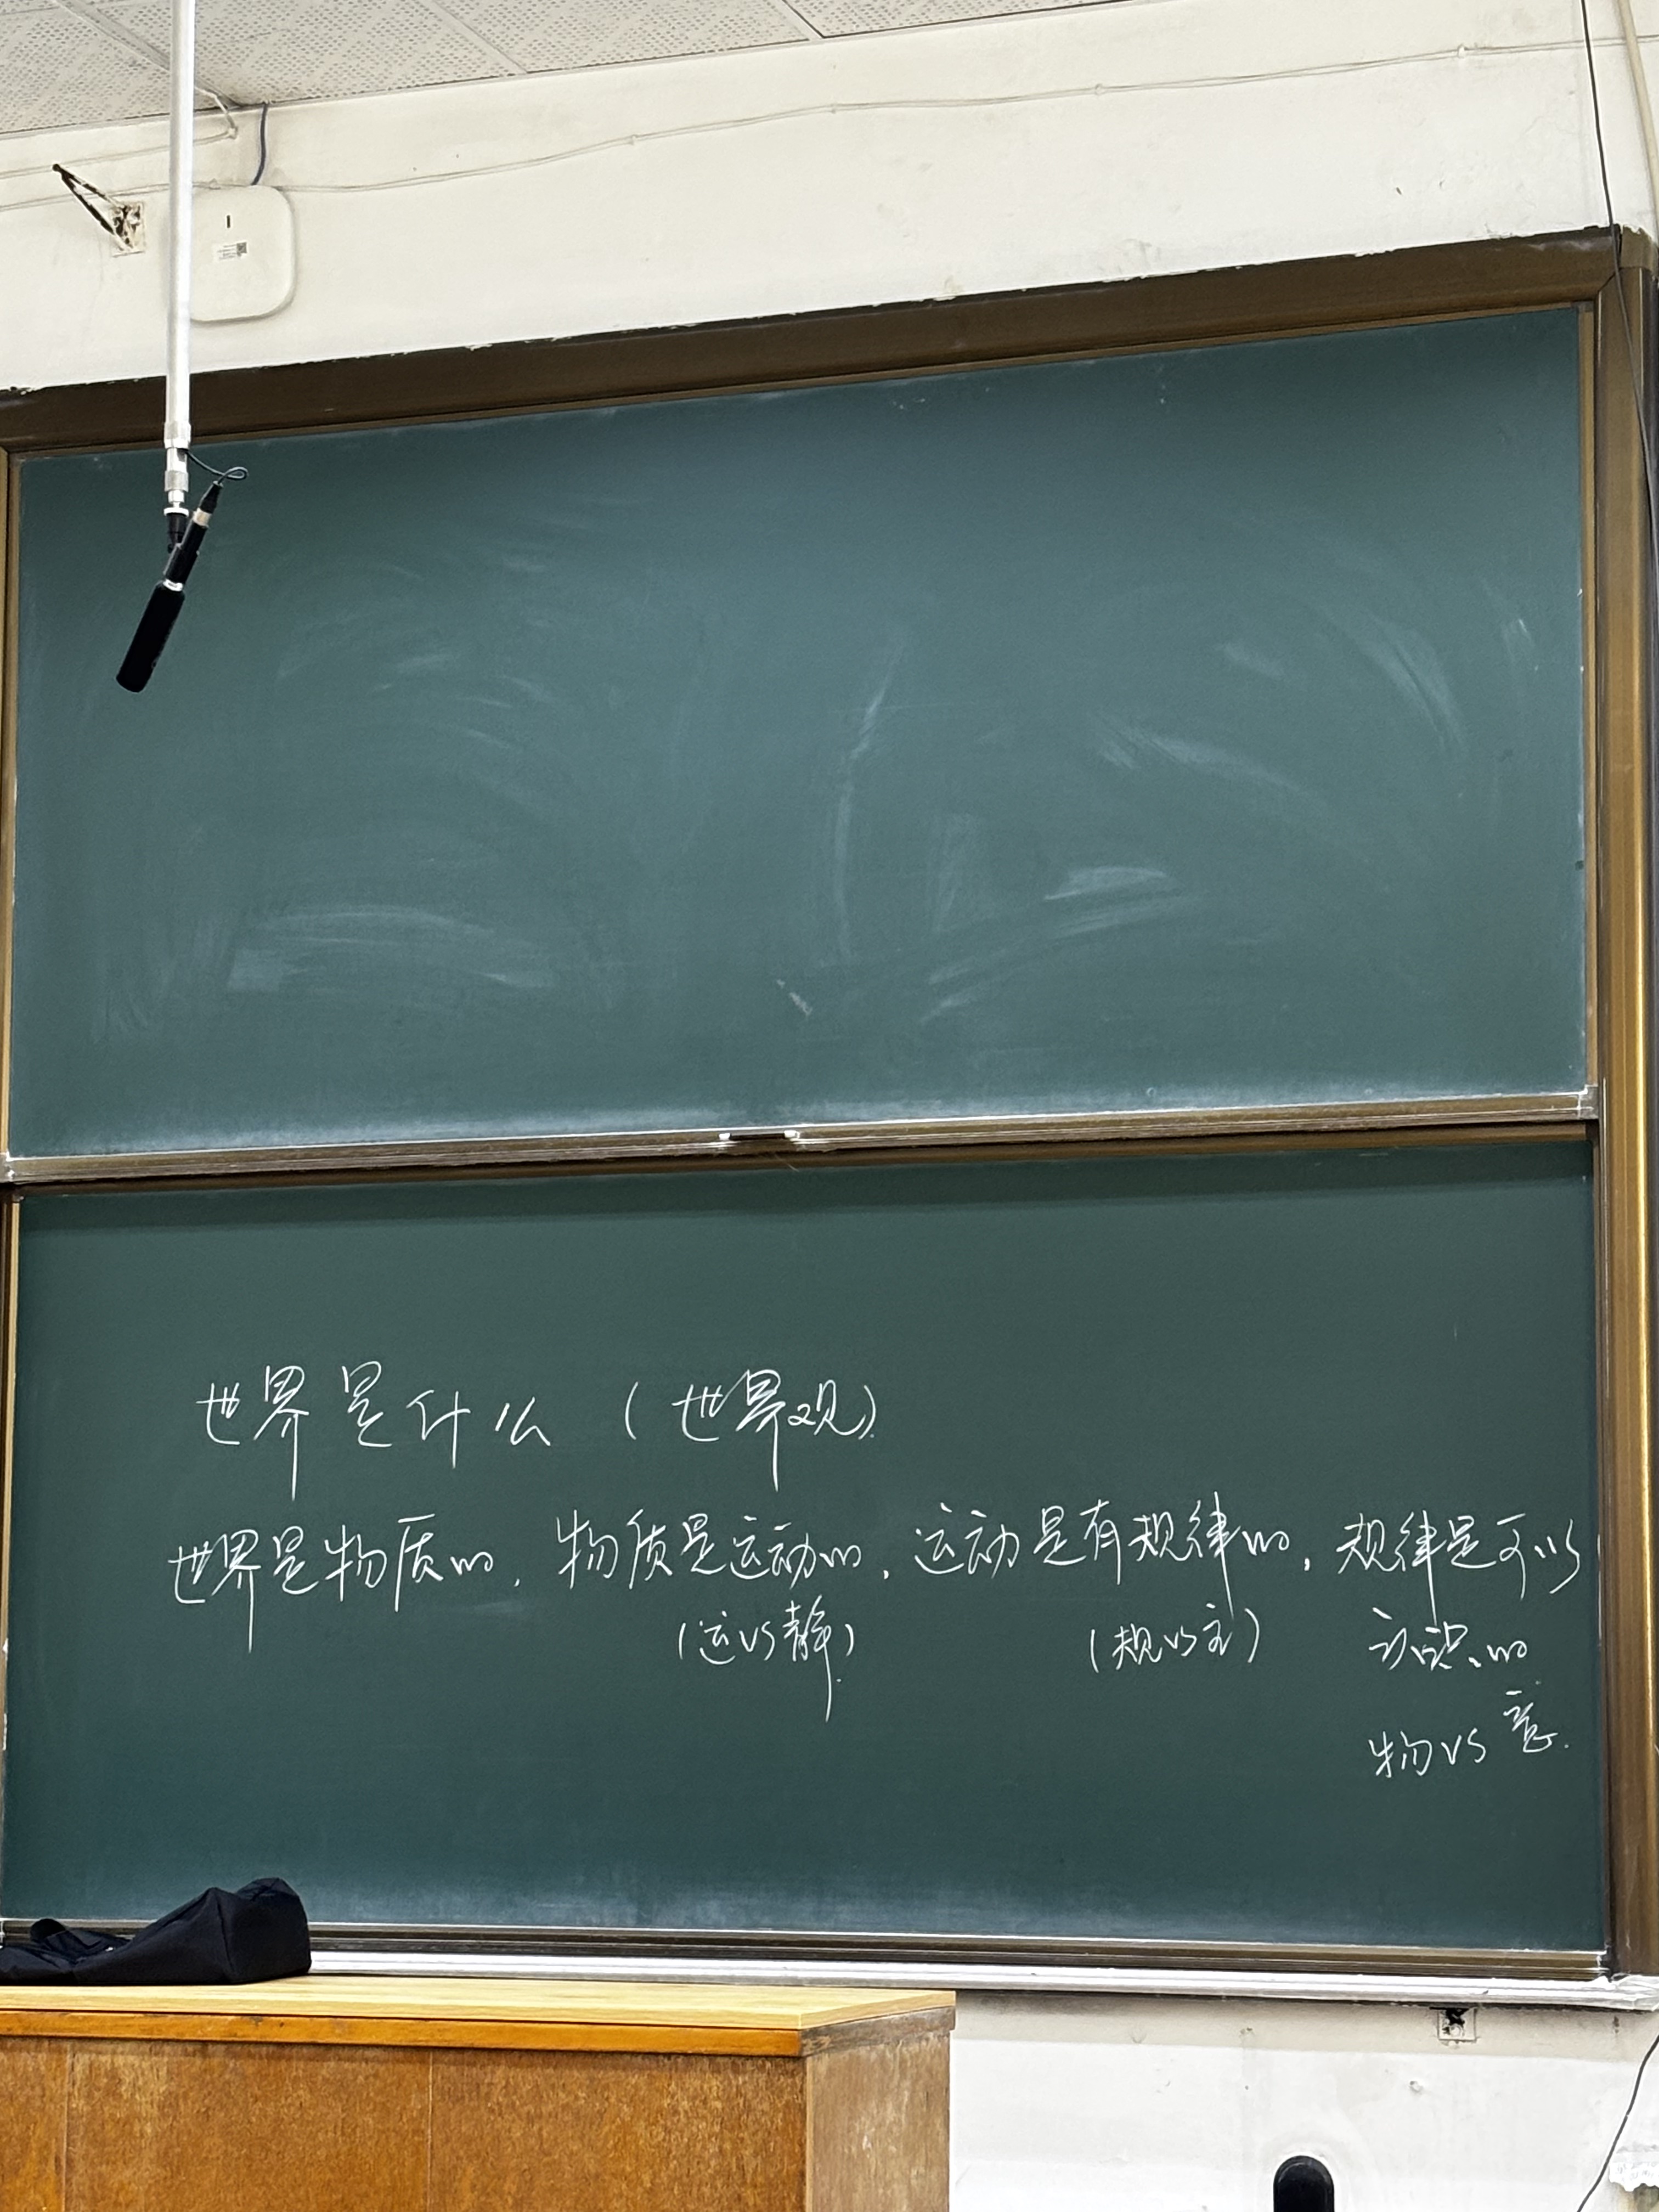 世界是什么（世界观）
世界是物质的，物质是运动的，运动是有规律的，规律是可以
（运vs静）（规vs主）认识的
物vs意